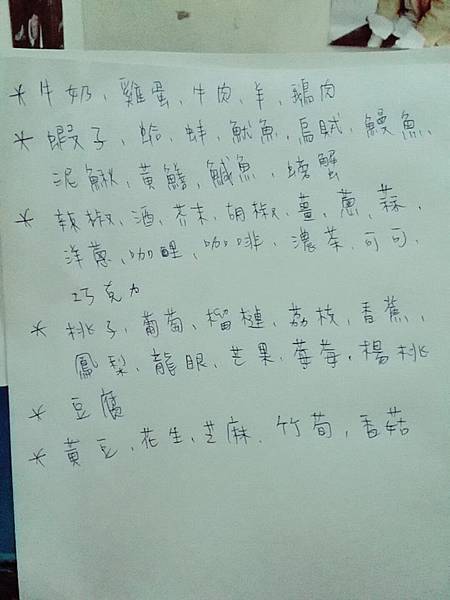 * 牛奶、雞蛋、牛肉、羊、鵝肉
* 蝦子、蛤、蚌、魷魚、烏賊、鰻魚、
泥鰍、黃鱔、鹹魚、螃蟹
* 辣椒、酒、芥末、胡椒、薑、蔥、蒜、
洋蔥、咖哩、咖啡、濃茶、可可、
巧克力
* 桃子、葡萄、榴槤、荔枝、香蕉、
鳳梨、龍眼、芒果、草莓、楊桃
* 豆腐
* 黃豆、花生、芝麻、竹筍、香菇